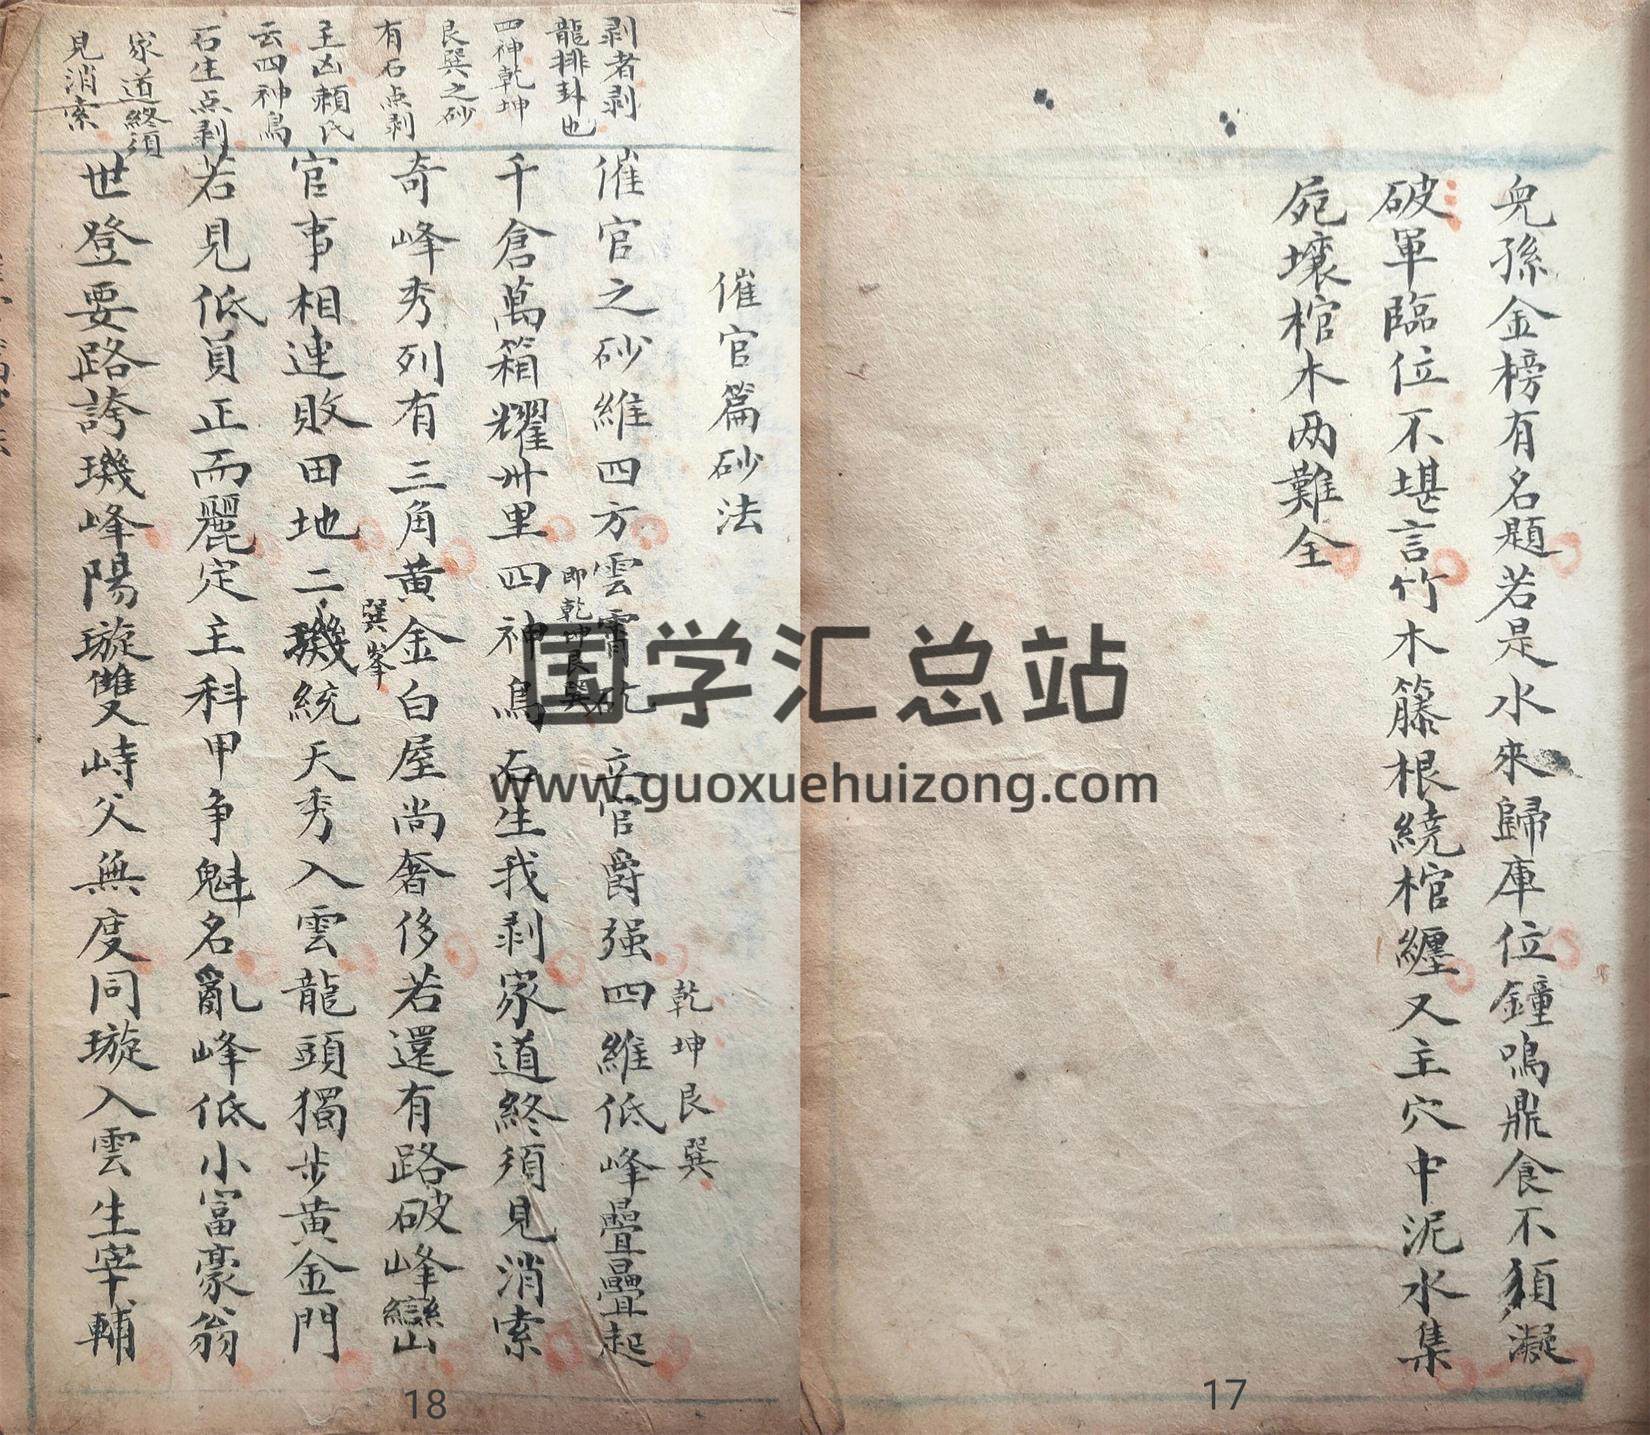 兒孫金榜有名題若是水來歸庫位鐘鳴鼎食不須凝
破軍臨位不堪言竹木籐根繞棺纏又主穴中泥水集
屍壞棺木两難全
17
催官篇砂法
乾坤艮巽
催官之砂維四方雲霄屹立官爵强四維低峰疊疊起
即乾坤艮巽
千倉萬箱耀州里四神鳥石生我剥家道終須見消索
奇峰秀列有三角黄金白屋尚奢侈若還有路破峰巒
巽峯
官事相連敗田地二璣統天秀入雲龍頭獨步黄金門
若見低員正而麗定主科甲争魁名亂峰低小富豪翁
世登要路誇璣峰陽璇雙峙父無度同璇入雲生宰輔
剥者剥
龍排卦也
四神乾坤
艮巽之砂
有石点剥
主凶頼氏
云四神鳥
石生点剥
家道終須
見消索
18
国学汇总站
www.guoxuehuizong.com